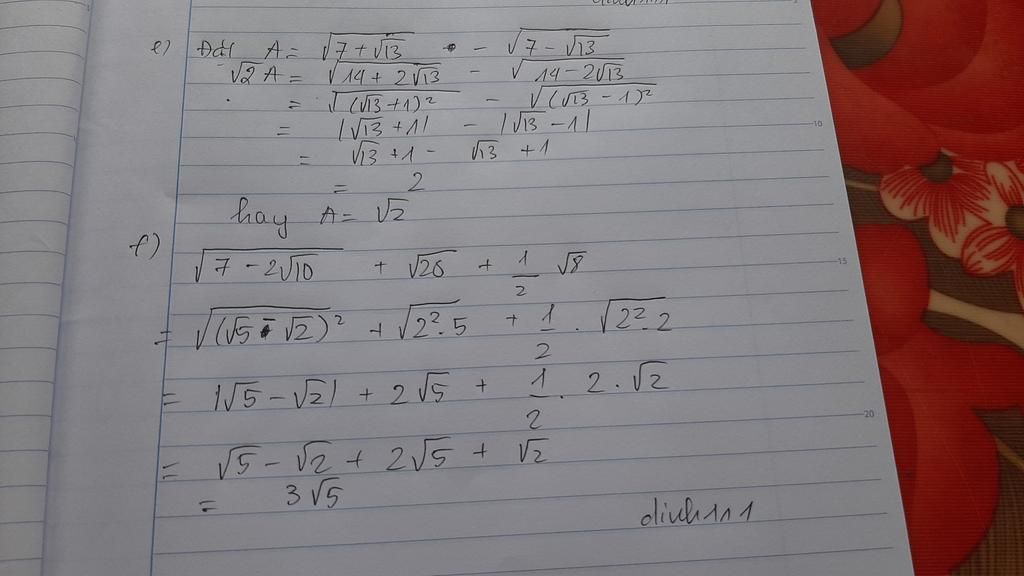 e) Đặt A = √(7 + √13) - √(7 - √13)
√2 A = √(14 + 2√13) - √(14 - 2√13)
= √((√13 + 1)²) - √((√13 - 1)²)
= |√13 + 1| - |√13 - 1|
= √13 + 1 - √13 + 1
= 2
hay A = √2
f)
√(7 - 2√10) + √20 + 1/2 √8
= √((√5 - √2)²) + √(2².5) + 1/2 . √(2².2)
= |√5 - √2| + 2√5 + 1/2 . 2 . √2
= √5 - √2 + 2√5 + √2
= 3√5
dinh111
10
15
20